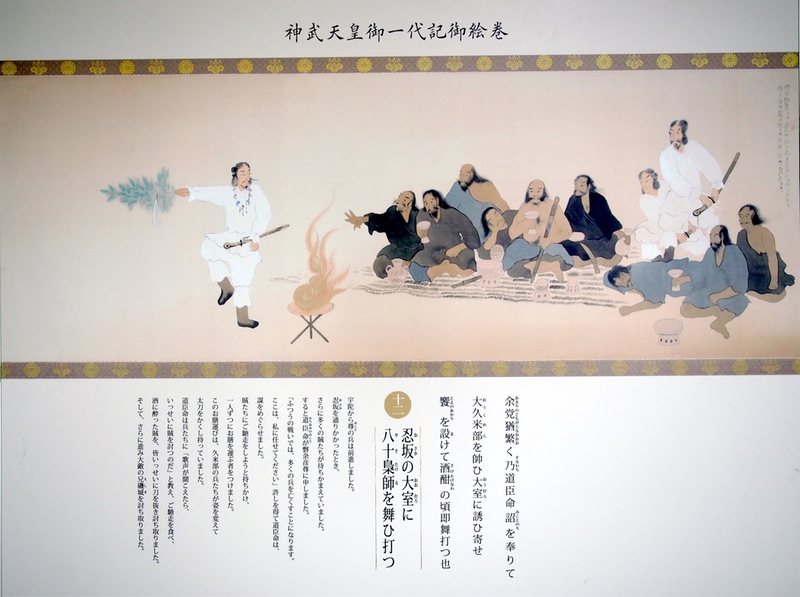 神武天皇御一代記御絵巻
余党猶繁く乃道臣命 詔を奉りて
大久米部を帥ひ大室に誘ひ寄せ
饗を設けて酒酣の頃即舞打つ也
十二
忍坂の大室に
八十梟師を舞ひ打つ
宇陀から尊の兵は前進しました。
忍坂を通りかかったとき、
さらに多くの賊たちが待ちかまえていました。
すると道臣命が磐余彦尊に申しました。
「ふつうの戦いでは、多くの兵を亡くすことになります。
ここは、私に任せてください」許しを得て道臣命は、
謀をめぐらせました。
賊たちにご馳走をしようと持ちかけ、
一人ずつにお膳を運ぶ者をつけました。
このお膳運びは、久米部の兵たちが姿を変えて
太刀をかくし持っていました。
道臣命は兵たちに「歌声が聞こえたら、
いっせいに賊を討つのだ」と教え、ご馳走を食べ、
酒に酔った賊を、皆いっせいに刀を抜き討ち取りました。
そして、さらに進み大敵の兄磯城を討ち取りました。